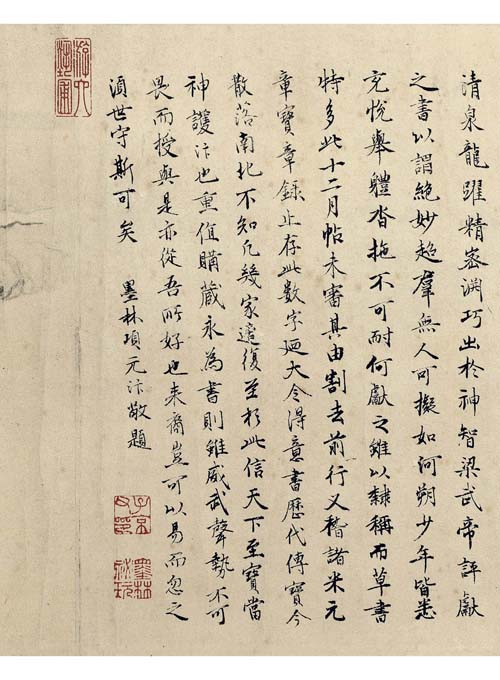 清泉龍躍精密淵巧出於神智梁武帝評獻
之書以謂絕妙超羣無人可擬如河朔少年皆悉
充悅舉體沓拖不可耐何獻之雖以隸稱而草書
特多此十二月帖未審其由割去前行又稽諸米元
章寶章錄止存此數字迺大令得意書歷代傳寶今
散落南北不知凡幾家遠復至於此信天下至寶當
神護汴也重值購藏永為書則雖威武聲勢不可
畏而授與是亦從吾所好也來裔豈可以易而忽之
須世守斯可矣
墨林項元汴敬題
子京父印
墨林